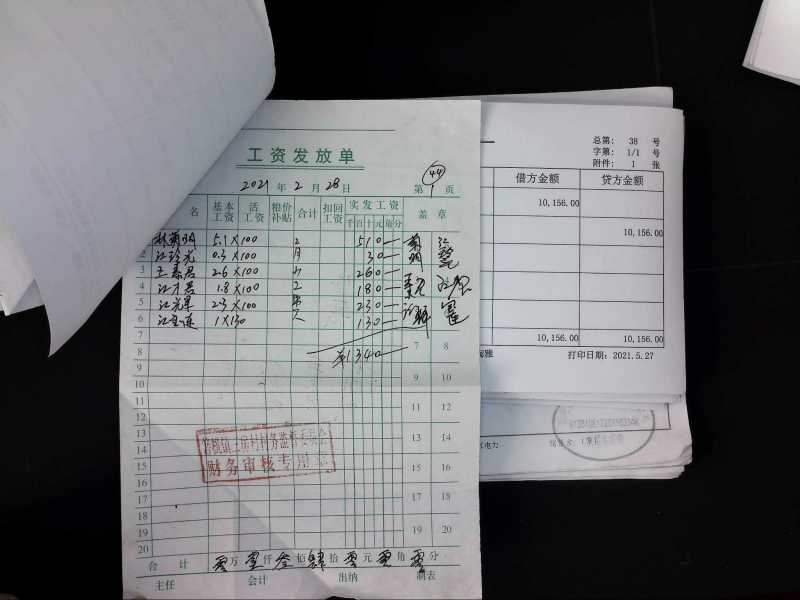 工资发放单
44
2021 年 2 月 28 日 第 1 页
名 基本工资 活工资 粮价补贴 合计 扣回工资 实发工资 盖章
千百十元角分
5.1×100 2 510—
2 江珍光 0.3×100 月 30—
3 2.6×100 小 260—
4 江才君 1.8×100 工 180—
5 江光军 2.3×100 230—
6 1×130 130—
7 8
8 1340—
9 9 10
10
11 11 12
12
13 13 14
14
15 15 16
16
17 17 18
18
19 19 20
20
村务监督委员会
财务审核专用章
合计 零万壹仟叁佰肆拾零元零角零分
主任 会计 出纳 制表
总第: 38 号
字第: 1/1 号
附件: 1 张
借方金额 贷方金额
10,156.00
10,156.00
10,156.00 10,156.00
打印日期: 2021.5.27